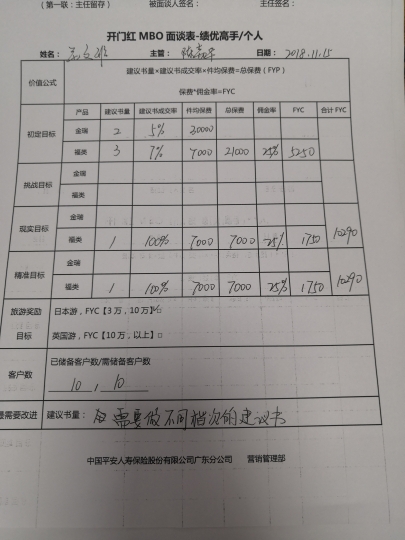 （第一联：主任留存） 被面谈人签名： 主任签名：
开门红 MBO 面谈表-绩优高手/个人
姓名： 主管： 日期： 2018.11.15
价值公式 建议书量×建议书成交率×件均保费=总保费（FYP）
保费*佣金率=FYC
产品 建议书量 建议书成交率 件均保费 总保费 佣金率 FYC 合计 FYC
初定目标 金瑞 2 5% 20000
福类 3 7% 7000 21000 25% 5250
挑战目标 金瑞
福类
现实目标 金瑞
福类 1 100% 7000 7000 25% 1750 10290
精准目标 金瑞
福类 1 100% 7000 7000 25% 1750 10290
旅游奖励 日本游，FYC【3 万，10 万】
目标 英国游，FYC【10 万，以上】□
客户数 已储备客户数/需储备客户数
10 , 10
最需要改进 建议书量： 需要做不同档次的建议书
中国平安人寿保险股份有限公司广东分公司 营销管理部